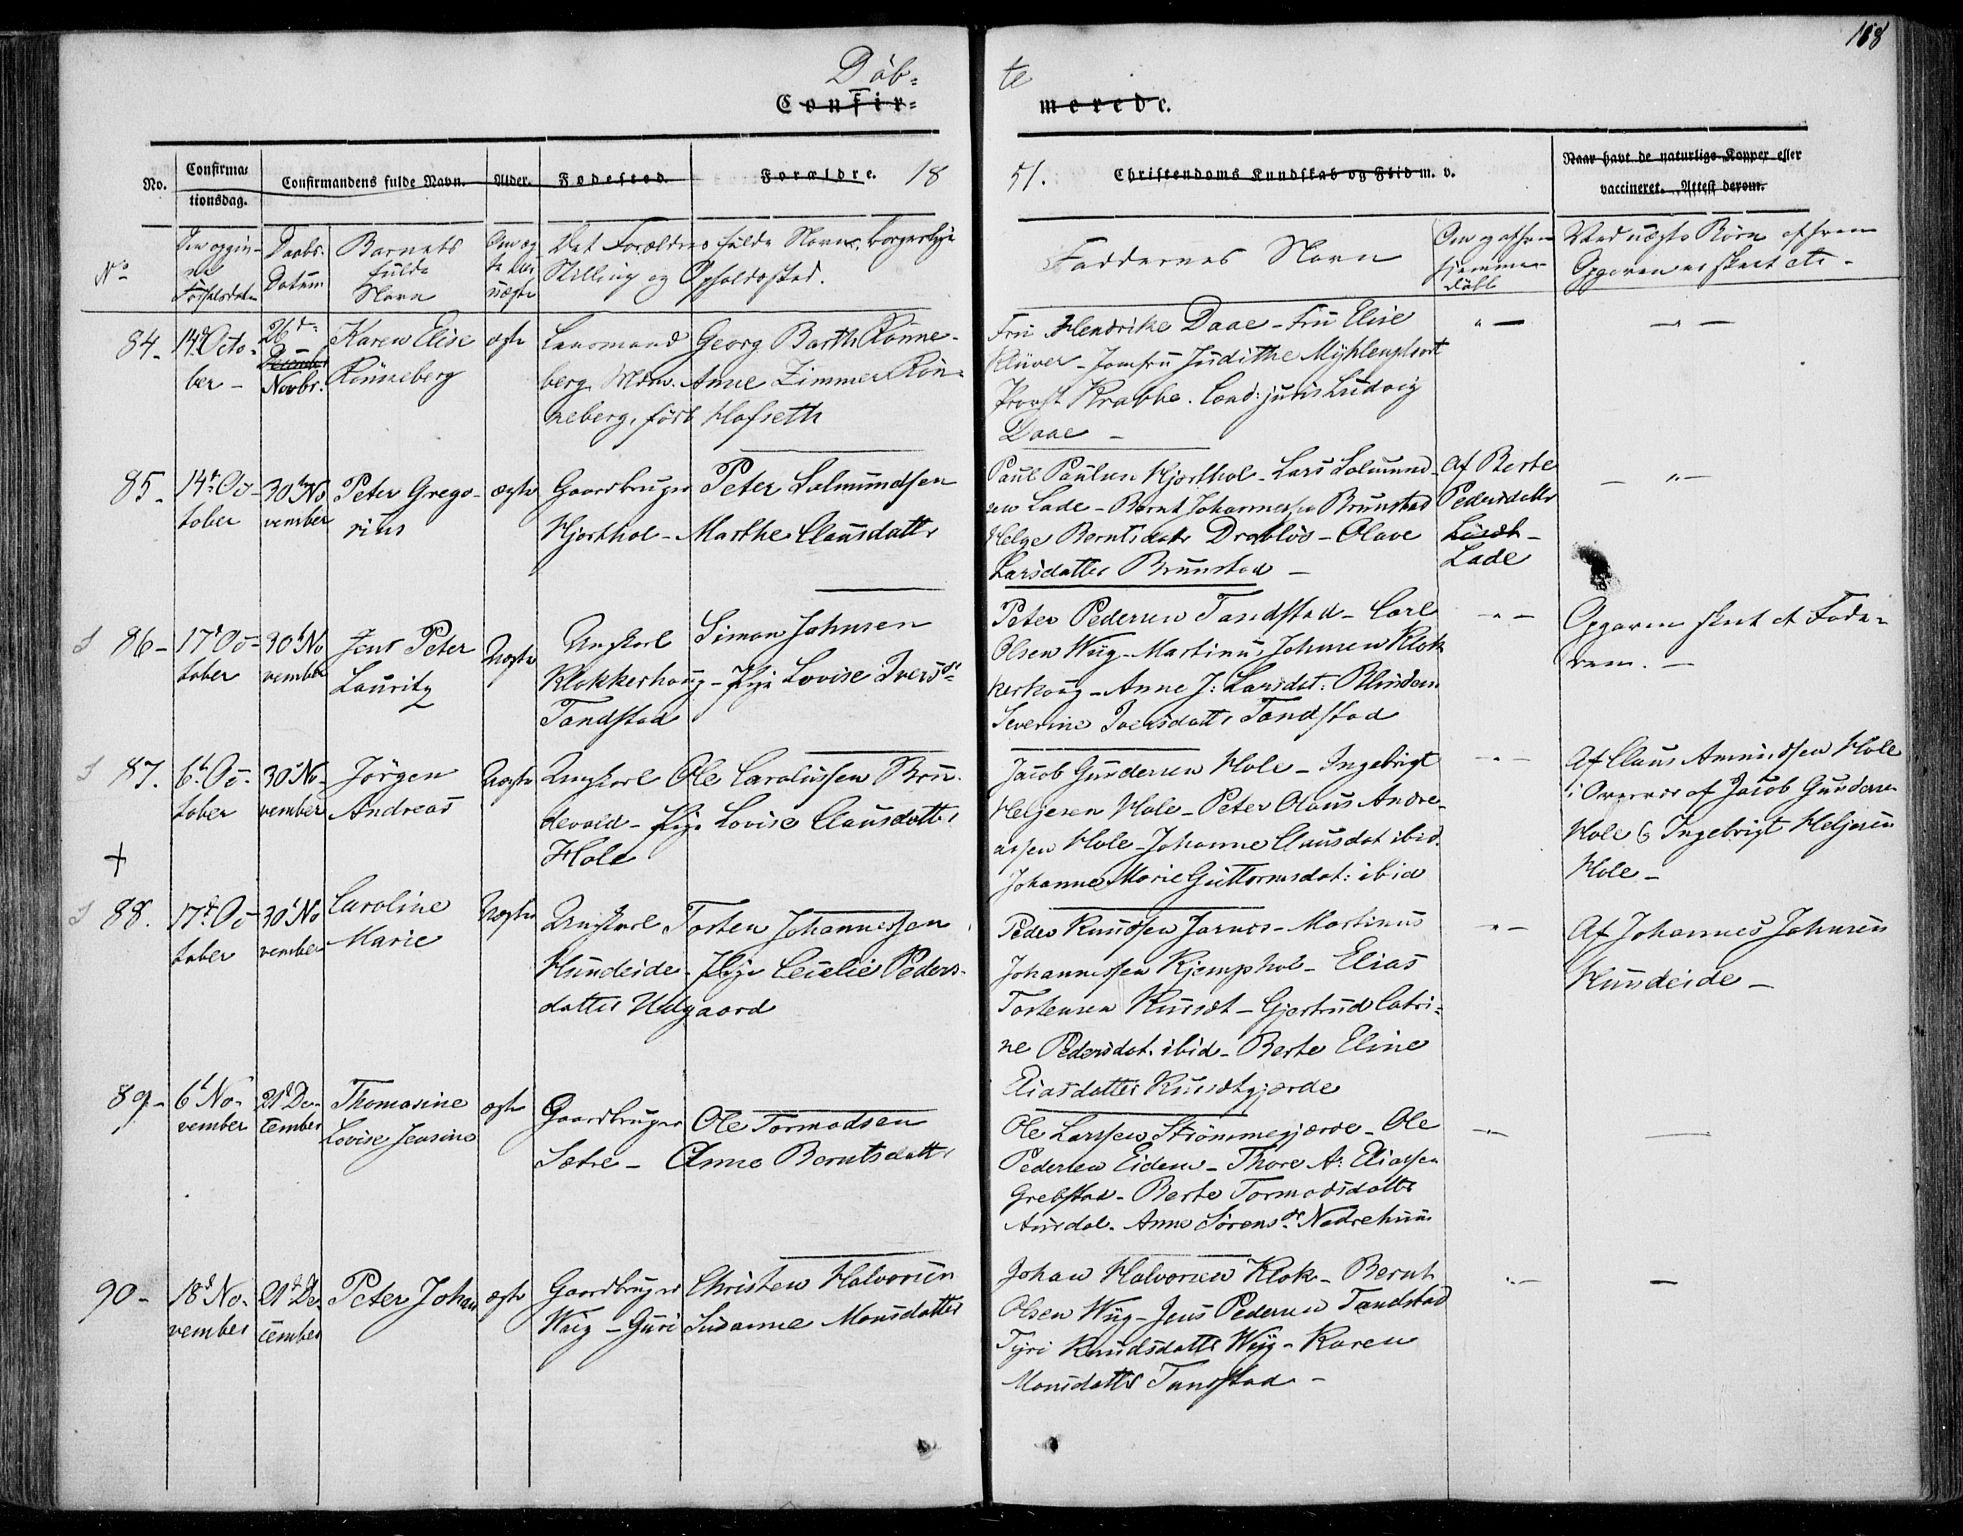 168
Døb=
te
Confir=
merede.
No.
Confirma=
tionsdag.
Confirmandens fulde Navn.
Alder.
Fødested.
Forældre.
18
51.
Christendoms Kundskab og Flid m. v.
Naar havt de naturlige Kopper eller
vaccineret. Attest derom.
No
Den opgiv-
ne
Fødselsdat
Daabs-
Datum
Barnets
fulde
Navn
Om æg-
te eller
uægte
Det Forældres fulde Navn, borgerlige
Stilling og Opholdssted.
Faddernes Navn
Om
hjemme-
døbt
Ved uægte Børn af hvem
Opgaven er skeet etc -
84-
14d Octo-
ber -
26d
December
Novbr.
Karen Elise
Rönneberg
ægte
Lensmand Georg Barth Rönne-
berg Mdm. Anne Zimmer Rön-
neberg, født Hofseth
Frü Hendrike Daae - Frü Elise
Klüver - Jomfrü Judithe Mÿhlenphort
Provst Krabbe. Cand: juris Ludvig
Daae -
85-
14d Oc-
tober
30t No
vember
Peter Grego-
rius
ægte
Gaardbruger Peter Salmundsen
Hjorthol - Marthe Clausdatter
Paul Paulsen Hjorthol - Lars Salmund-
sen Lade - Bernt Johannessen Brunstad
Helge Berntsdatr Drabløs - Olave
Larsdatter Brunstad -
Af Berte
Pedersdattr
Lade
86-
17d Oc-
tober
30t No
vember
Jens Peter
Lauritz
Uægte
Ungkarl Simon Johnsen
Klokkerhoug - Pige Lovise Iversdr
Tandstad
Peter Pedersen Tandstad - Carl
Olsen Wiig - Martinus Johnsen Klok
kerhoug - Anne J: Larsdat: Blindem
Severine Iversdattr Tandstad
Opgaven skeet af Fade-
ren. -
87.
6t Oc-
tober
30t No-
vember
Jörgen
Andreas
Uægte
Ungkarl Ole Carolussen Brü-
devold - Pige Lovise Clausdatter
Hole
Jacob Gundersen Hole - Ingebrigt
Heljesen Hole - Peter Olaus Andre-
assen Hole - Johanne Clausdat ibid.
Johanne Marie Guttormsdat: ibid
Af Claus Amundsen Hole
i Overvær af Jacob Gunderse
Hole & Ingebrigt Heljesen
Hole -
+
88.
17d Oc-
tober
30t No
vember
Caroline
Marie
Uægte
Ungkarl Torsten Johannessen
Hundeide - Pige Cecilie Peders-
datter Uelgaard
Peder Knudsen Jarnes - Martinus
Johannessen Kjemphol - Elias
Torstensen Kursæt - Gjertrud Catri-
ne Pedersdat. ibid - Berte Eline
Eliasdatter Kursætgjerde
Af Johannes Johnsen
Hundeide -
89-
6t No-
vember
21d De-
cember
Thomasine
Lovise Jensine
ægte
Gaardbruger Ole Tormodsen
Sætre - Anne Berntsdatter
Ole Larssen Strömmegjerde - Ole
Pedersen Eidem - Thore A: Eliassen
Grebstad - Berte Tormodsdatter
Aursdal - Anne Sörensdr Nedrehuus
90-
18d No-
vember
21d De-
cember
Peter Johan
ægte
Gaardbruger Christen Halvorsen
Wiig - Guri Susanne Monsdatter
Johan Halvorsen Klok - Bernt
Olsen Wiig - Jens Pedersen Tandstad
Tyri Knudsdatter Wiig - Karen
Monsdatter Tandstad -